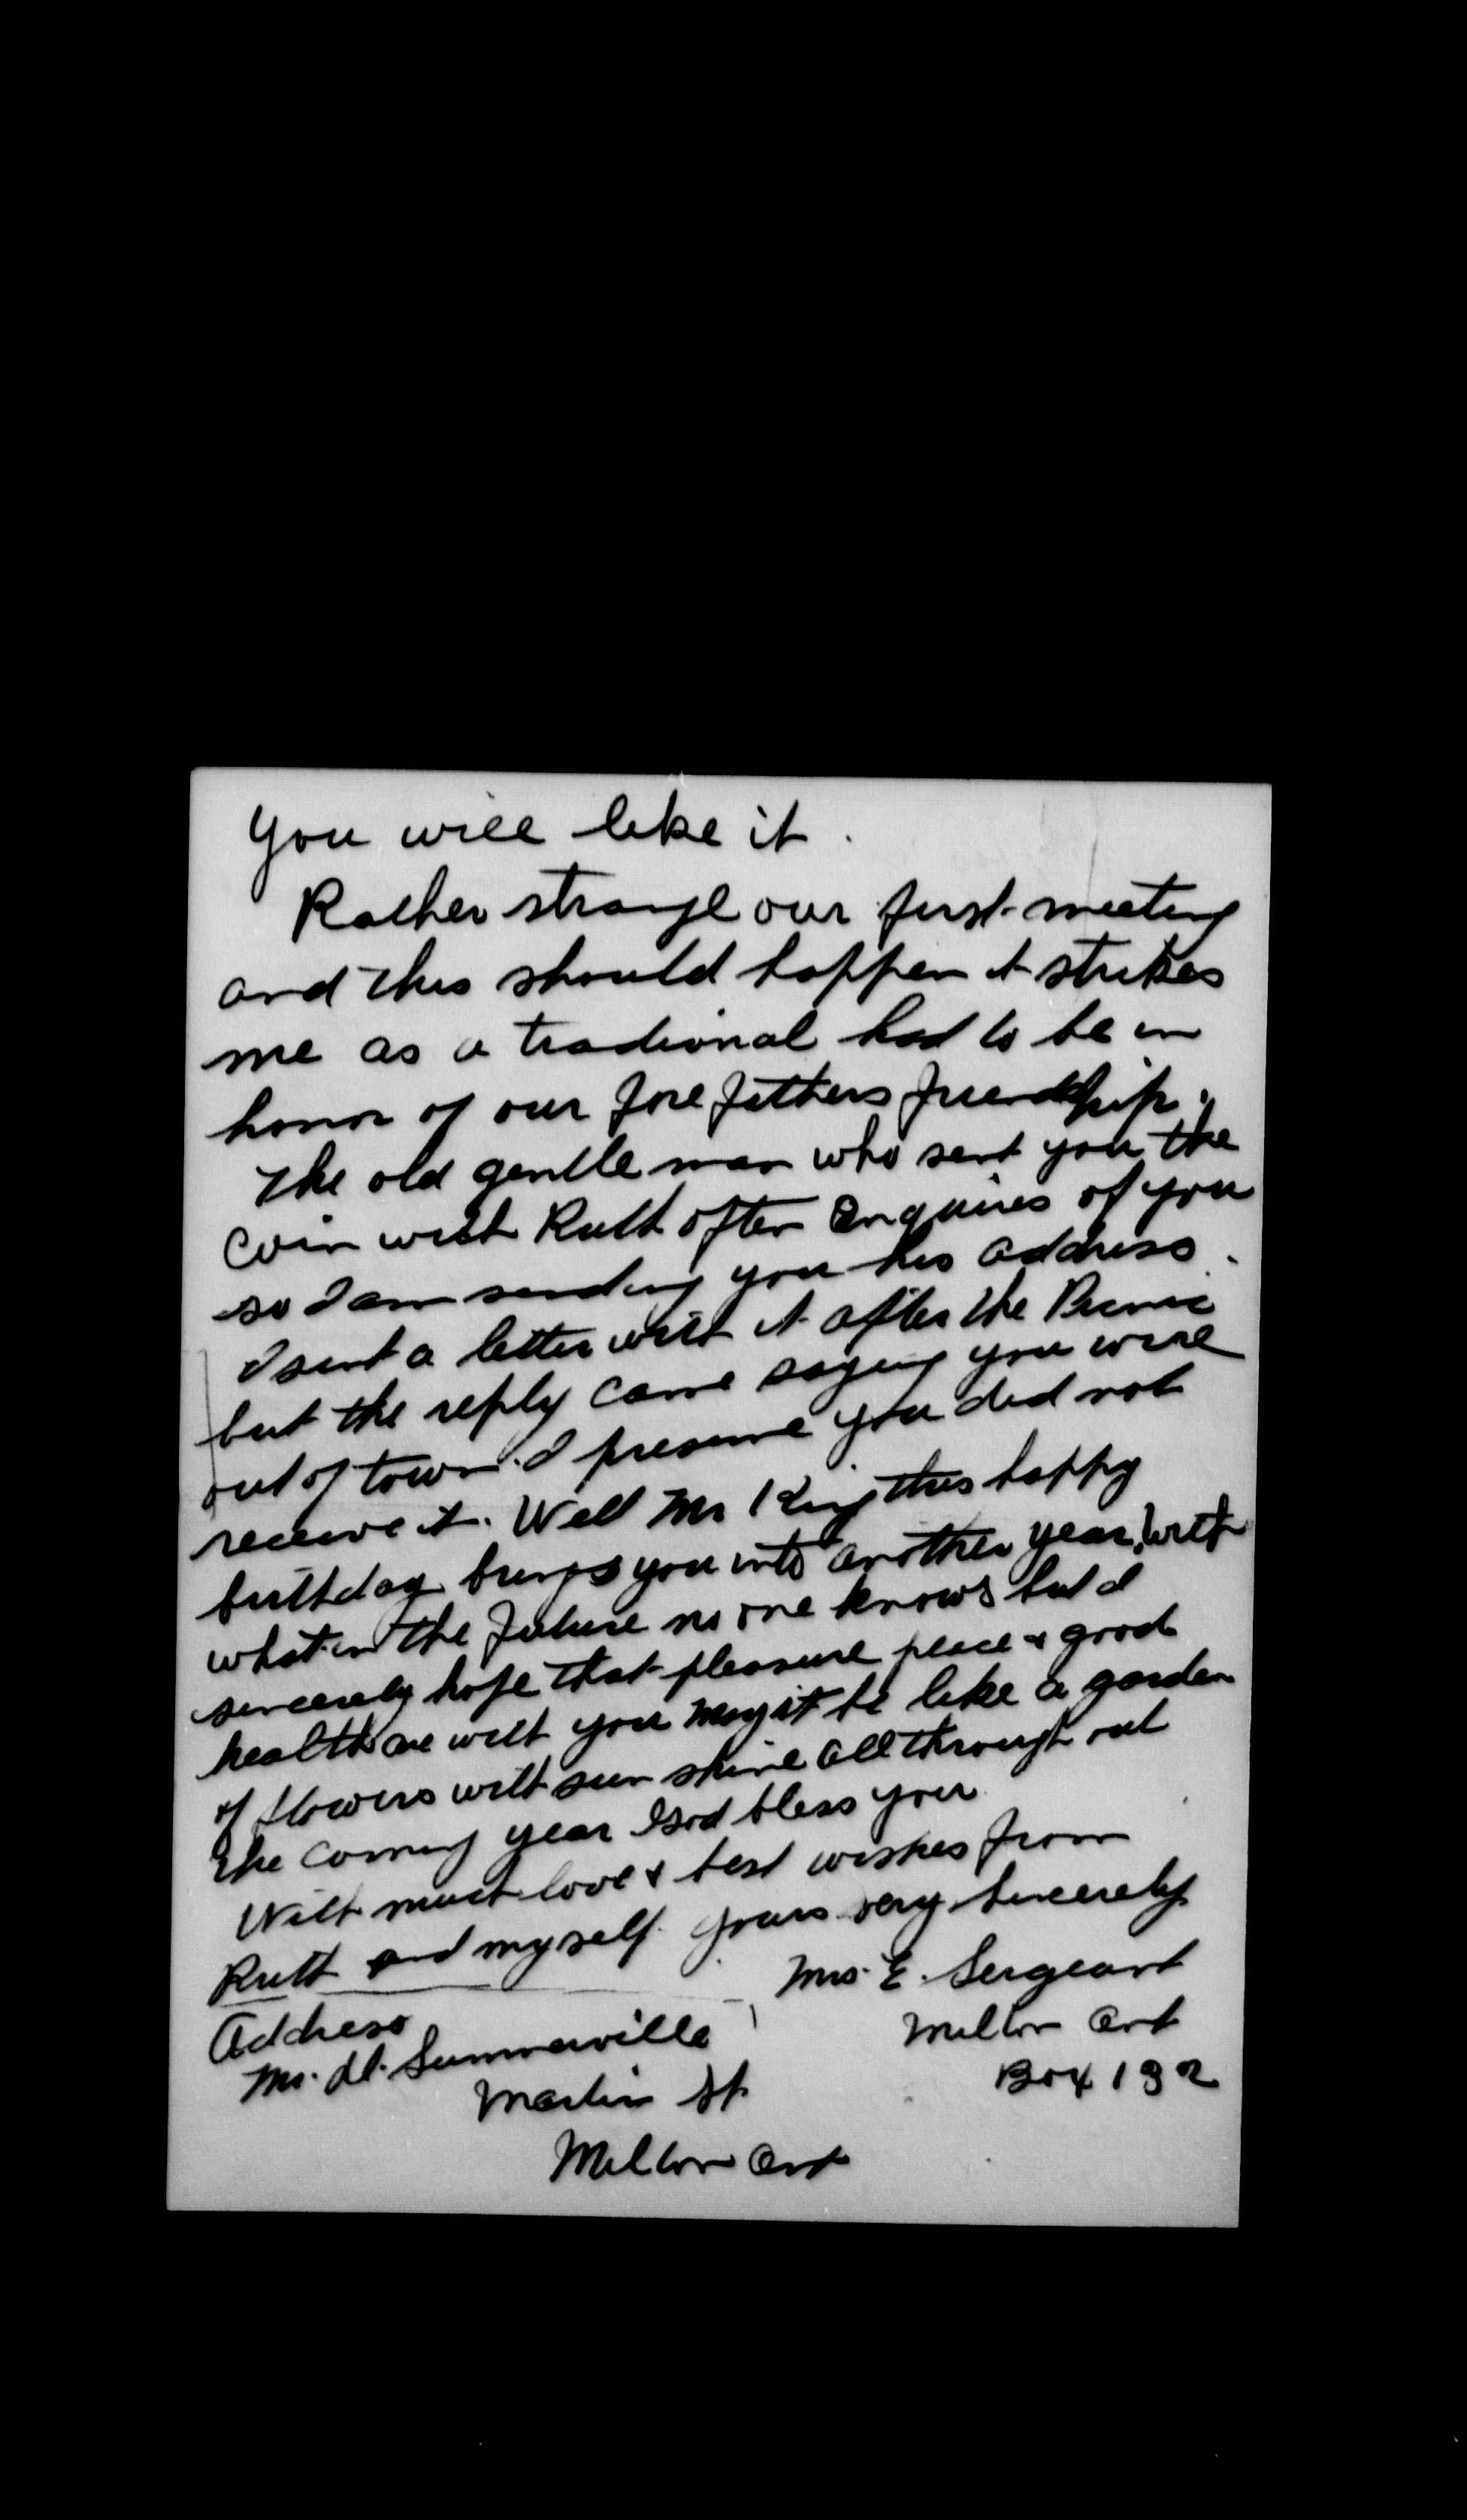 you will like it.
Rather strange our first meeting
and this should happen it strikes
me as a tradional had to be in
honor of our fore fathers friendship.
The old gentle man who sent you the
coin with Ruth often Enquires of you
so I am sending you his address.
I sent a letter with it after the Picnic
but the reply came saying you were
out of town. I presume you did not
receive it. Well Mr King this happy
birthday brings you into another year, with
what in the future no one knows but I
sincerely hope that pleasure peace & good
health are with you may it be like a garden
of flowers with sun shine all through out
the coming year God bless you
With much love & best wishes from
Ruth and myself. yours very sincerely
Mrs. E. Sergeant
Milton Ont
Box 132
Address
Mr. Summerville
Martin St
Milton Ont